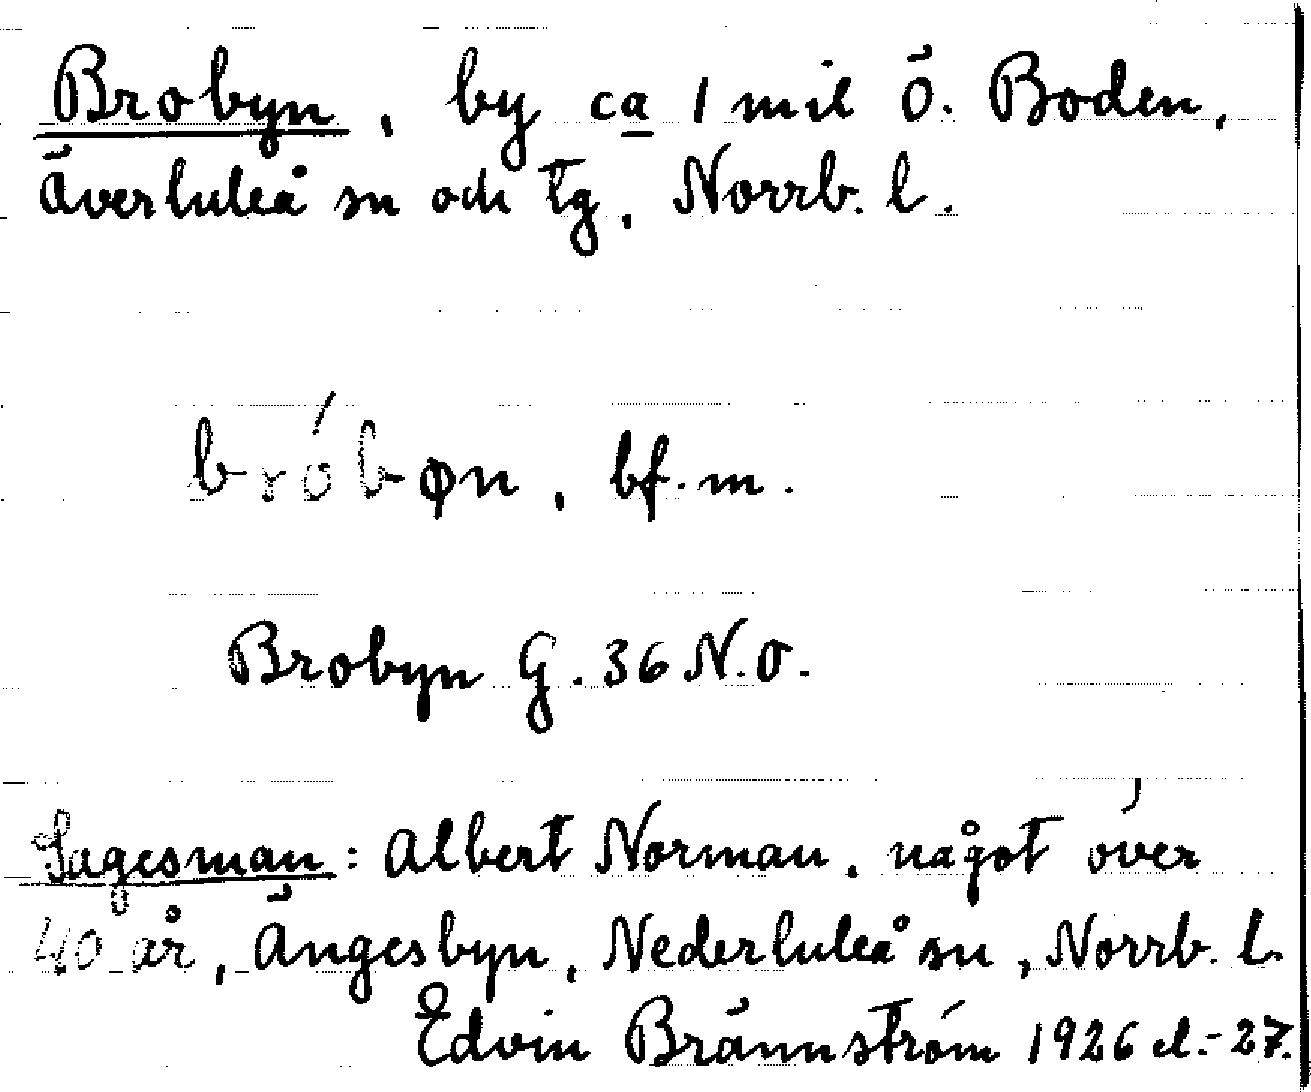 Brobyn, by ca 1 mil ö. Boden,
Överluleå sn och tg, Norrb. l.
bróbøn, bf. m.
Brobyn G. 36 N.O.
Sagesman: Albert Norman, något över
40 år, Ängesbyn, Nederluleå sn, Norrb. l.
Edvin Brännström 1926 el.-27.